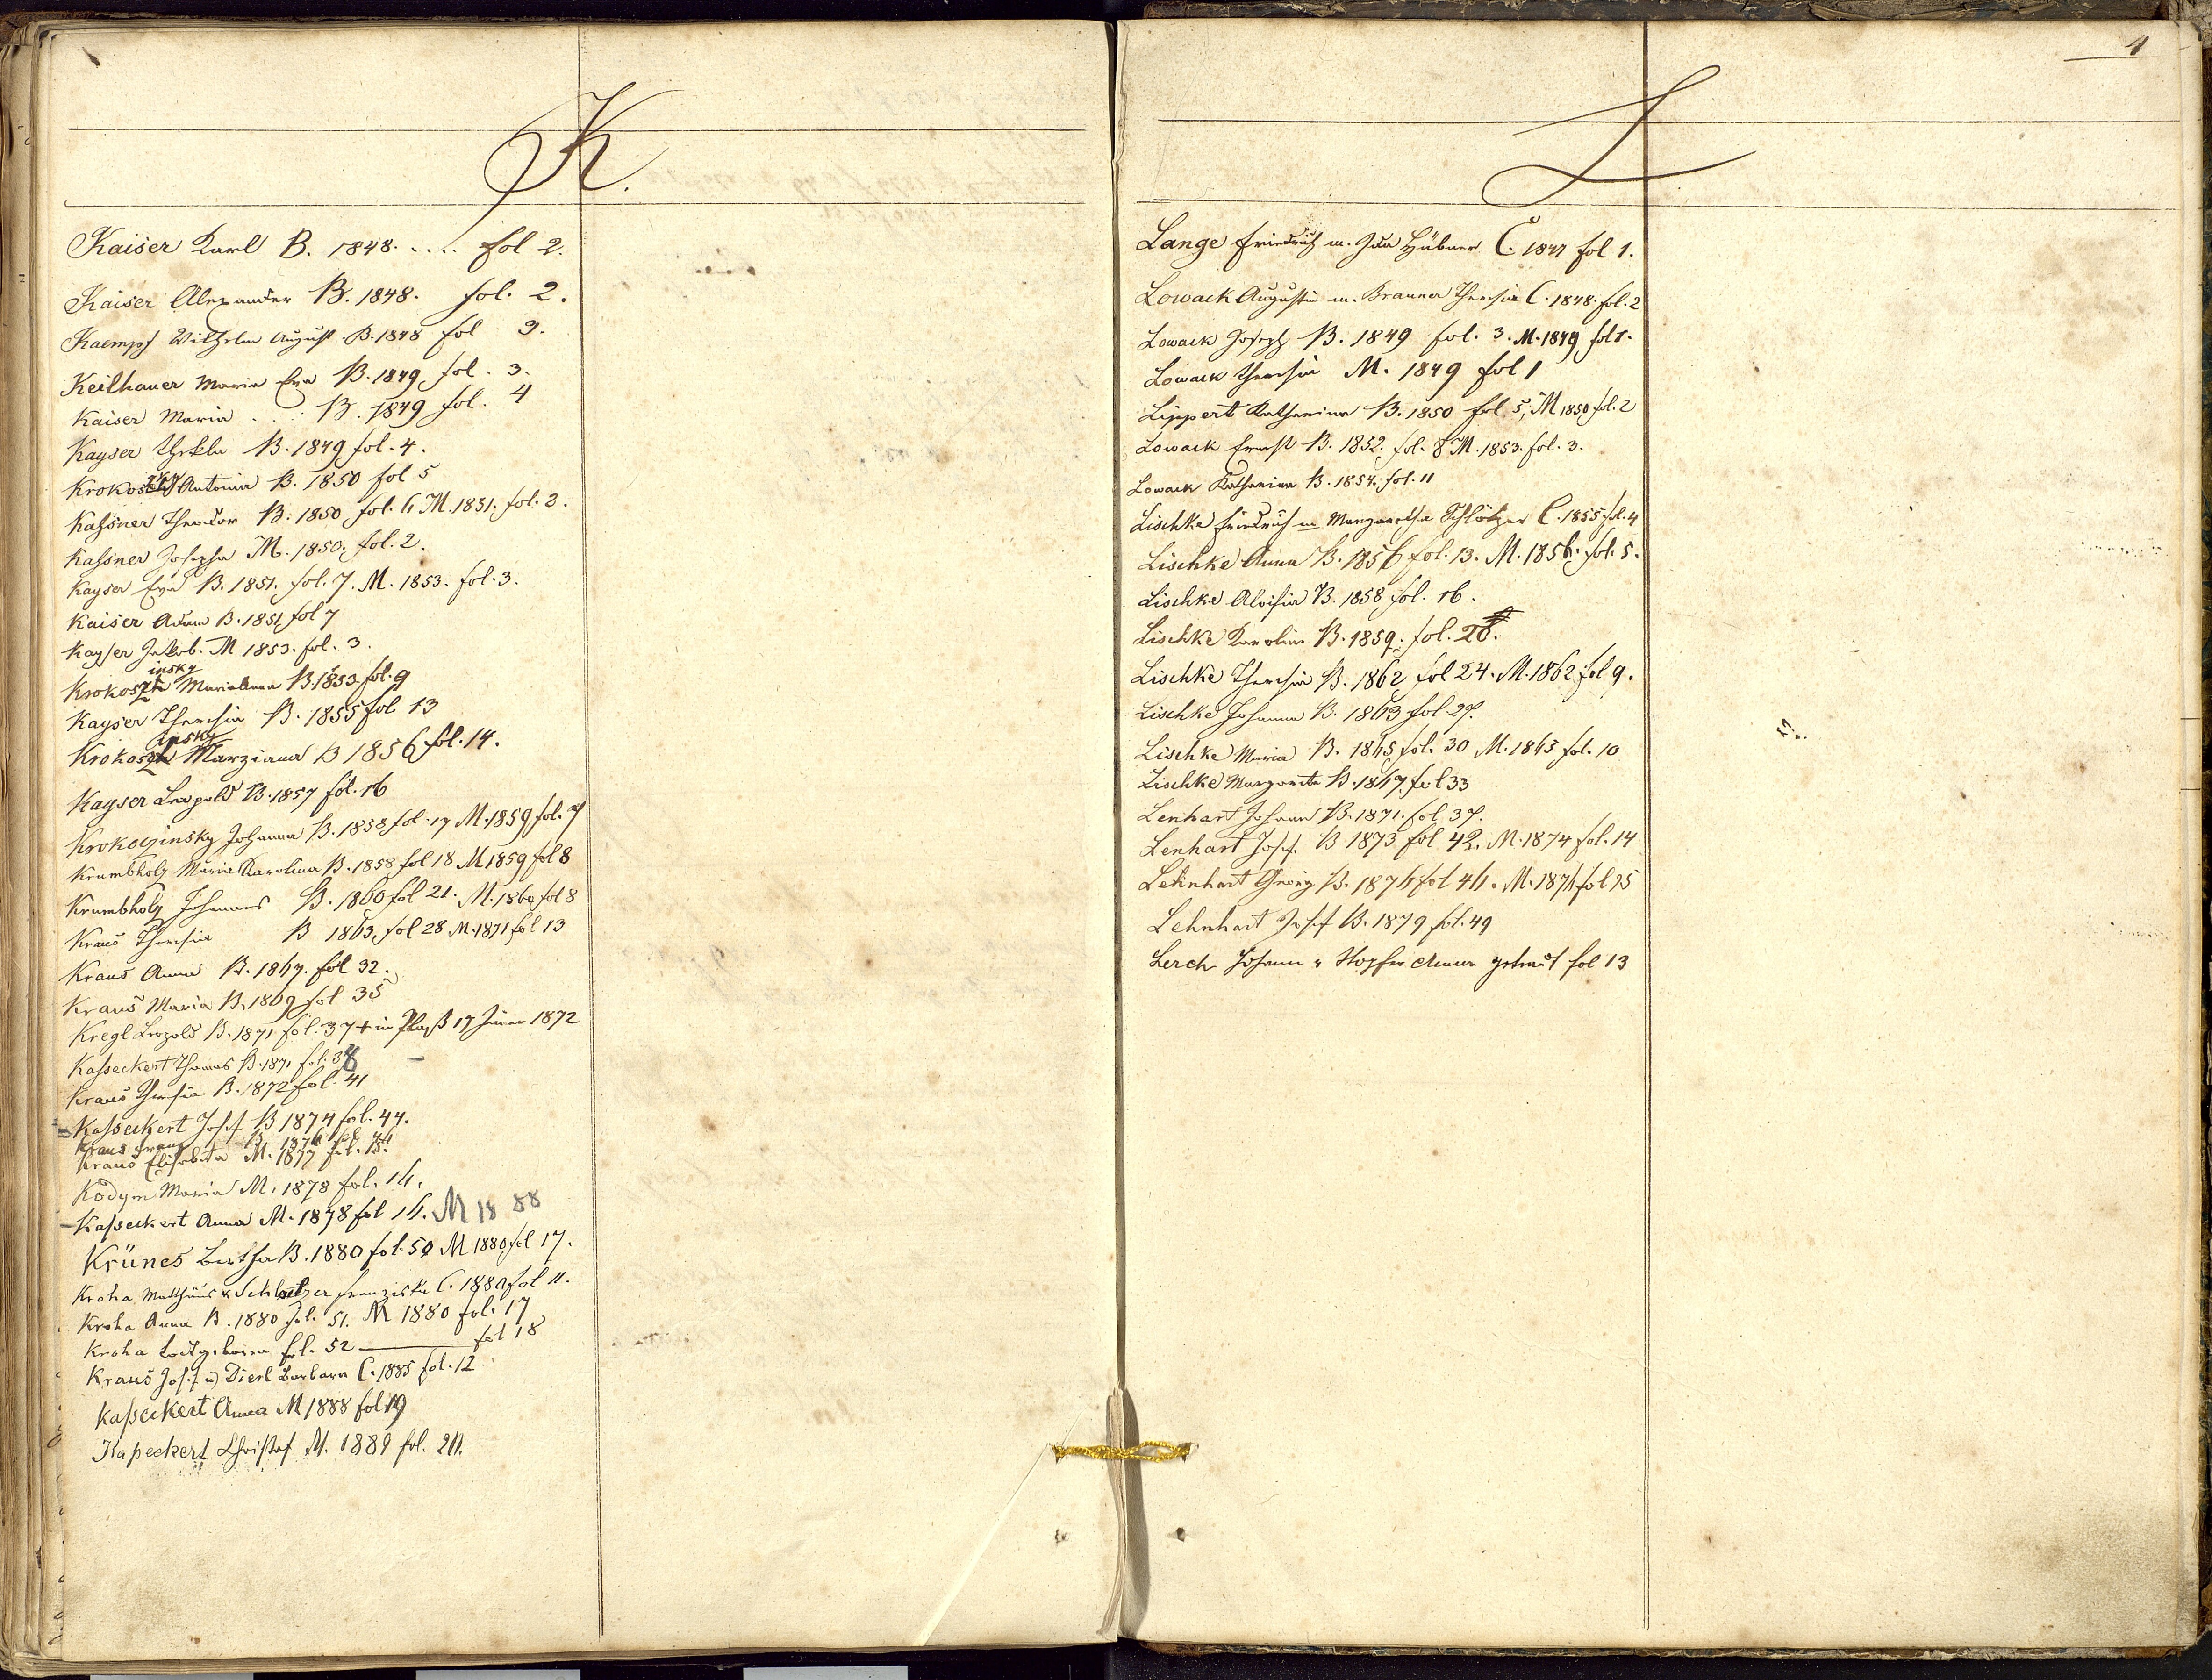 K.
Kaiser Karl B. 1848. .... fol 2.
Kaiser Alexander B. 1848. fol. 2.
Kaempf Wilhelm August B. 1848 fol 3.
Keilhauer Maria Eva B. 1849 fol. 3.
Kaiser Maria . . . B. 1849 fol. 4
Kayser Thekla B. 1849 fol. 4.
Antonia B. 1850 fol 5
Kaßner Theodor B. 1850 fol. 6 M. 1851. fol. 2.
Kaßner Josepha M. 1850. fol. 2.
Kayser Eva B. 1851. fol. 7. M. 1853. fol. 3.
Kaiser Adam B. 1851 fol 7
Kayser Jakob. M 1853. fol. 3.
insky
Krokosz Marianna B. 1853 fol. 9
Kayser Theresia B. 1855 fol 13
insky
Krokosz Marziana B 1856 fol. 14.
Kayser Leopold B. 1857 fol. 16
Krokoczinsky Johanna B. 1858 fol. 17 M. 1859 fol. 7
Krumbholz Maria Karolina B. 1858 fol 18 M 1859 fol 8
Krumbholz Johannes B. 1860 fol 21. M. 1860 fol 8
Kraus Theresia B 1863. fol 28 M. 1871 fol 13
Kraus Anna B. 1867. fol 32.
Kraus Maria B. 1869 fol 35
Kregl Leopold B. 1871 fol. 37 + in Plaß 17 Jänner 1872
Kaßeckert Thomas B. 1871 fol. 38
Kraus Theresia B. 1872 fol. 41
Kaßeckert Josef B 1874 fol. 44.
Kraus Franz B. 1876 fol.
Kraus Elisabeta M. 1877 fol. 15.
Kodym Maria M. 1878 fol. 16.
Kaßeckert Anna M. 1878 fol 16. M 18 88
Krünes Bertha B. 1880 fol. 50 M 1880 fol 17.
Kroha Matthäus u. Schlötzer Franziska C. 1880 fol 11.
Kroha Anna B. 1880 fol. 51. M 1880 fol. 17
Kroha Todtgeboren fol. 52 fol 18
Kraus Josef u Dierl Barbara C. 1885 fol. 12
Kaßeckert Anna M 1888 fol 19
Kaßeckert Christof M. 1889 fol. 20.
4
L
Lange Friedrich m. Ida Hübner C. 1847 fol 1.
Lowack Augustin m. Branner Theresia C. 1848. fol. 2
Lowack Joseph B. 1849 fol. 3. M. 1849 fol 1.
Lowack Theresia M. 1849 fol 1
Lippert Katharina B. 1850 fol. 5, M 1850 fol. 2
Lowack Ernst B. 1852. fol. 8 M. 1853. fol. 3.
Lowack Katharina B. 1854. fol. 11
Lischke Friedrich m Margaretha Schlötzer C. 1855 fol. 4
Lischke Anna B. 1856 fol. 13. M. 1856. fol. 5.
Lischke Aloisia B. 1858 fol. 16.
Lischke Karolina B. 1859. fol. 20.
Lischke Theresia B. 1862 fol 24. M. 1862 fol 9.
Lischke Johanna B. 1863 fol. 27.
Lischke Maria B. 1865 fol. 30 M. 1865 fol. 10
Lischke Margareta B. 1867 fol 33
Lenhart Johann B. 1871. fol 37.
Lenhart Josef. B 1873 fol 42. M. 1874 fol. 14
Lehnhart Georg B. 1876 fol 46. M. 1876 fol 15
Lehnhart Josef B. 1879 fol. 49
Lerch Johann u Hopfer Anna getraut fol 13